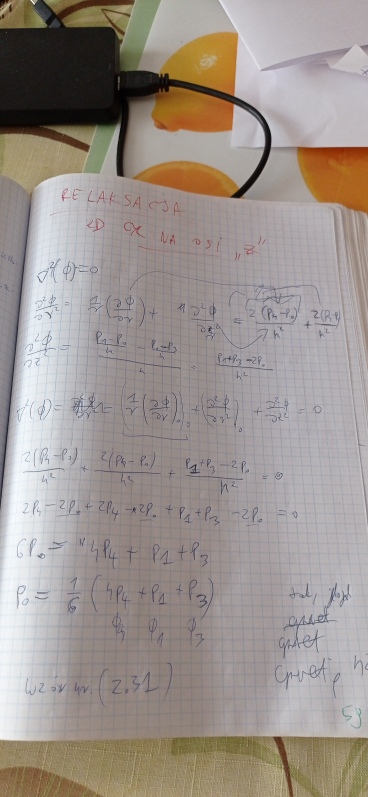 RELAKSACJA
2D CK NA OSI „Z"
∇²(Φ)=0
∂²Φ/∂r² = 1/r (∂Φ/∂r) + ∂²Φ/∂r² = 2(P₄-P₀)/h² + 2(P₄-P₀)/h²
∂²Φ/∂z² = (P₁-P₀/h - P₀-P₃/h)/h = P₁+P₃-2P₀/h²
∇²(Φ) = (1/r (∂Φ/∂r)₀)₀ + (∂²Φ/∂r²)₀ + ∂²Φ/∂z² = 0
2(P₄-P₀)/h² + 2(P₄-P₀)/h² + P₁+P₃-2P₀/h² = 0
2P₄-2P₀+2P₄-2P₀+P₁+P₃-2P₀ = 0
6P₀ = 4P₄ + P₁ + P₃
P₀ = 1/6 (4P₄+P₁+P₃)
Φ₄ Φ₁ Φ₃
wzór nr (2.31)
53